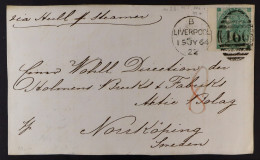 via Hull p Steamer
B
LIVERPOOL
15 JY 64
22
466
Herrn Wohll Direction der
Holmens Bruks & Fabriks
Actie Bolag
Norrköping
Sweden